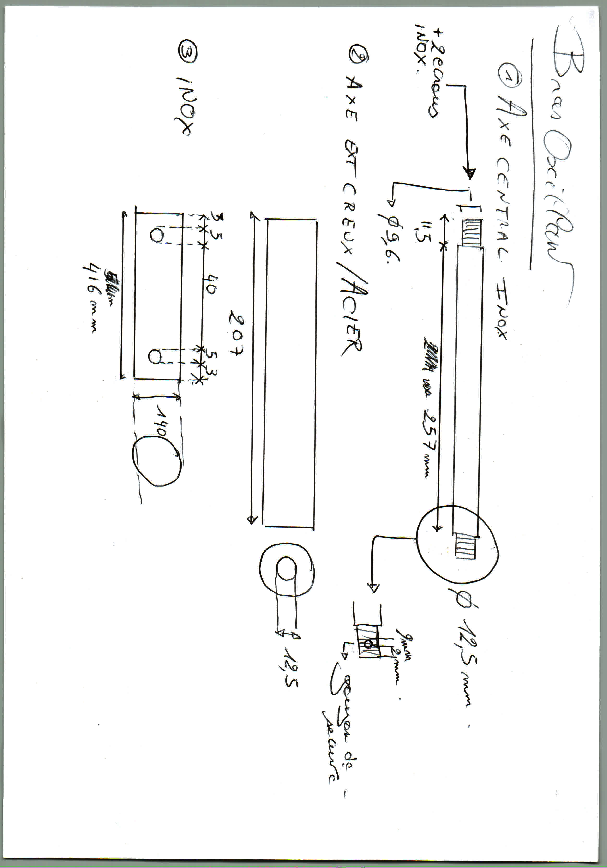 Bras Oscillant
① AXE CENTRAL INOX
+ 2 ecrous
INOX.
ø 9,6.
11,5
257 mm
ø 12,5 mm.
9mm
2mm.
goujon de
securité
② AXE EXT CREUX/ACIER
207
ø 12,5
③ INOX
3 5 40 5 3
416 mm
140